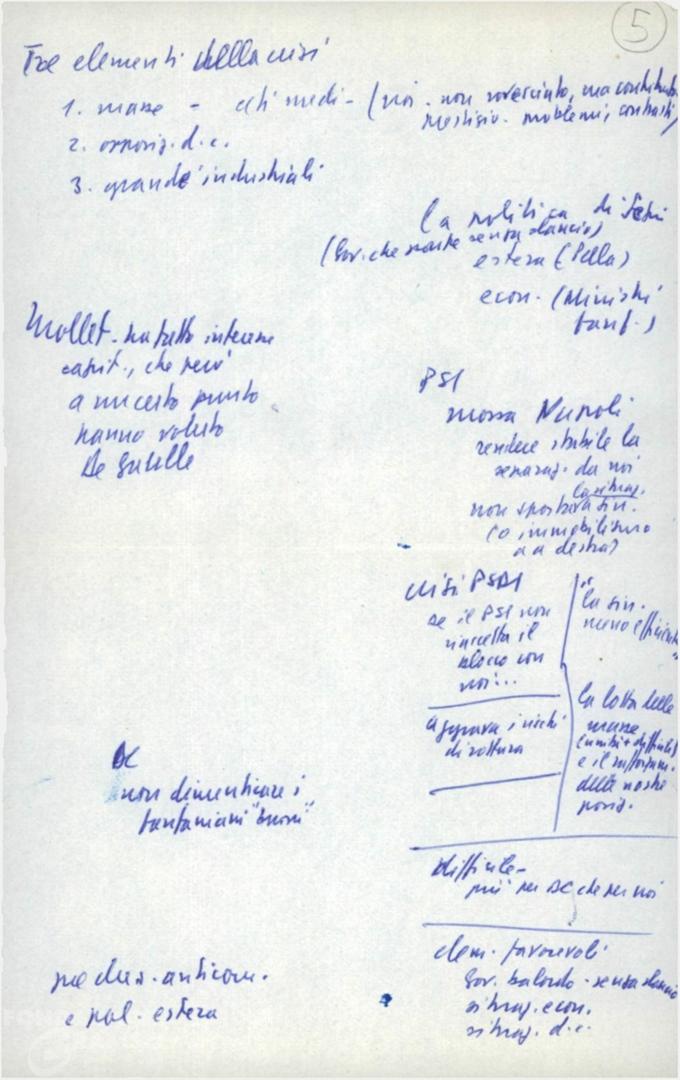 5
Tre elementi della crisi
1. masse - ceti medi - (noi - non rovesciato, ma contributo
prestigio - problemi, contrasti)
2. opposiz. d. c.
3. grandi industriali
La politica di Segni
(Gov. che nasce senza slancio)
estera (Pella)
econ. (Ministri
fanf.)
Mollet - ha fatto interesse
capit., che però
a un certo punto
hanno voluto
De Gaulle
PSI
mossa Napoli
rendere stabile la
separaz. da noi
la situaz.
non spostava a sin.
(o immobilismo
o a destra)
crisi PSDI
se il PSI non
riaccetta il
blocco con
noi...
"la sin.
meno efficiente
"
aggrava i rischi
di rottura
la lotta delle
masse
(unità + difficile)
e il rafforzam.
delle nostre
posiz.
DC
non dimenticare i
fanfaniani "buoni"
difficile -
più per DC che per noi
elem. favorevoli
Gov. balordo - senza slancio
situaz. econ.
situaz. d. c.
anticom.
e pol. estera